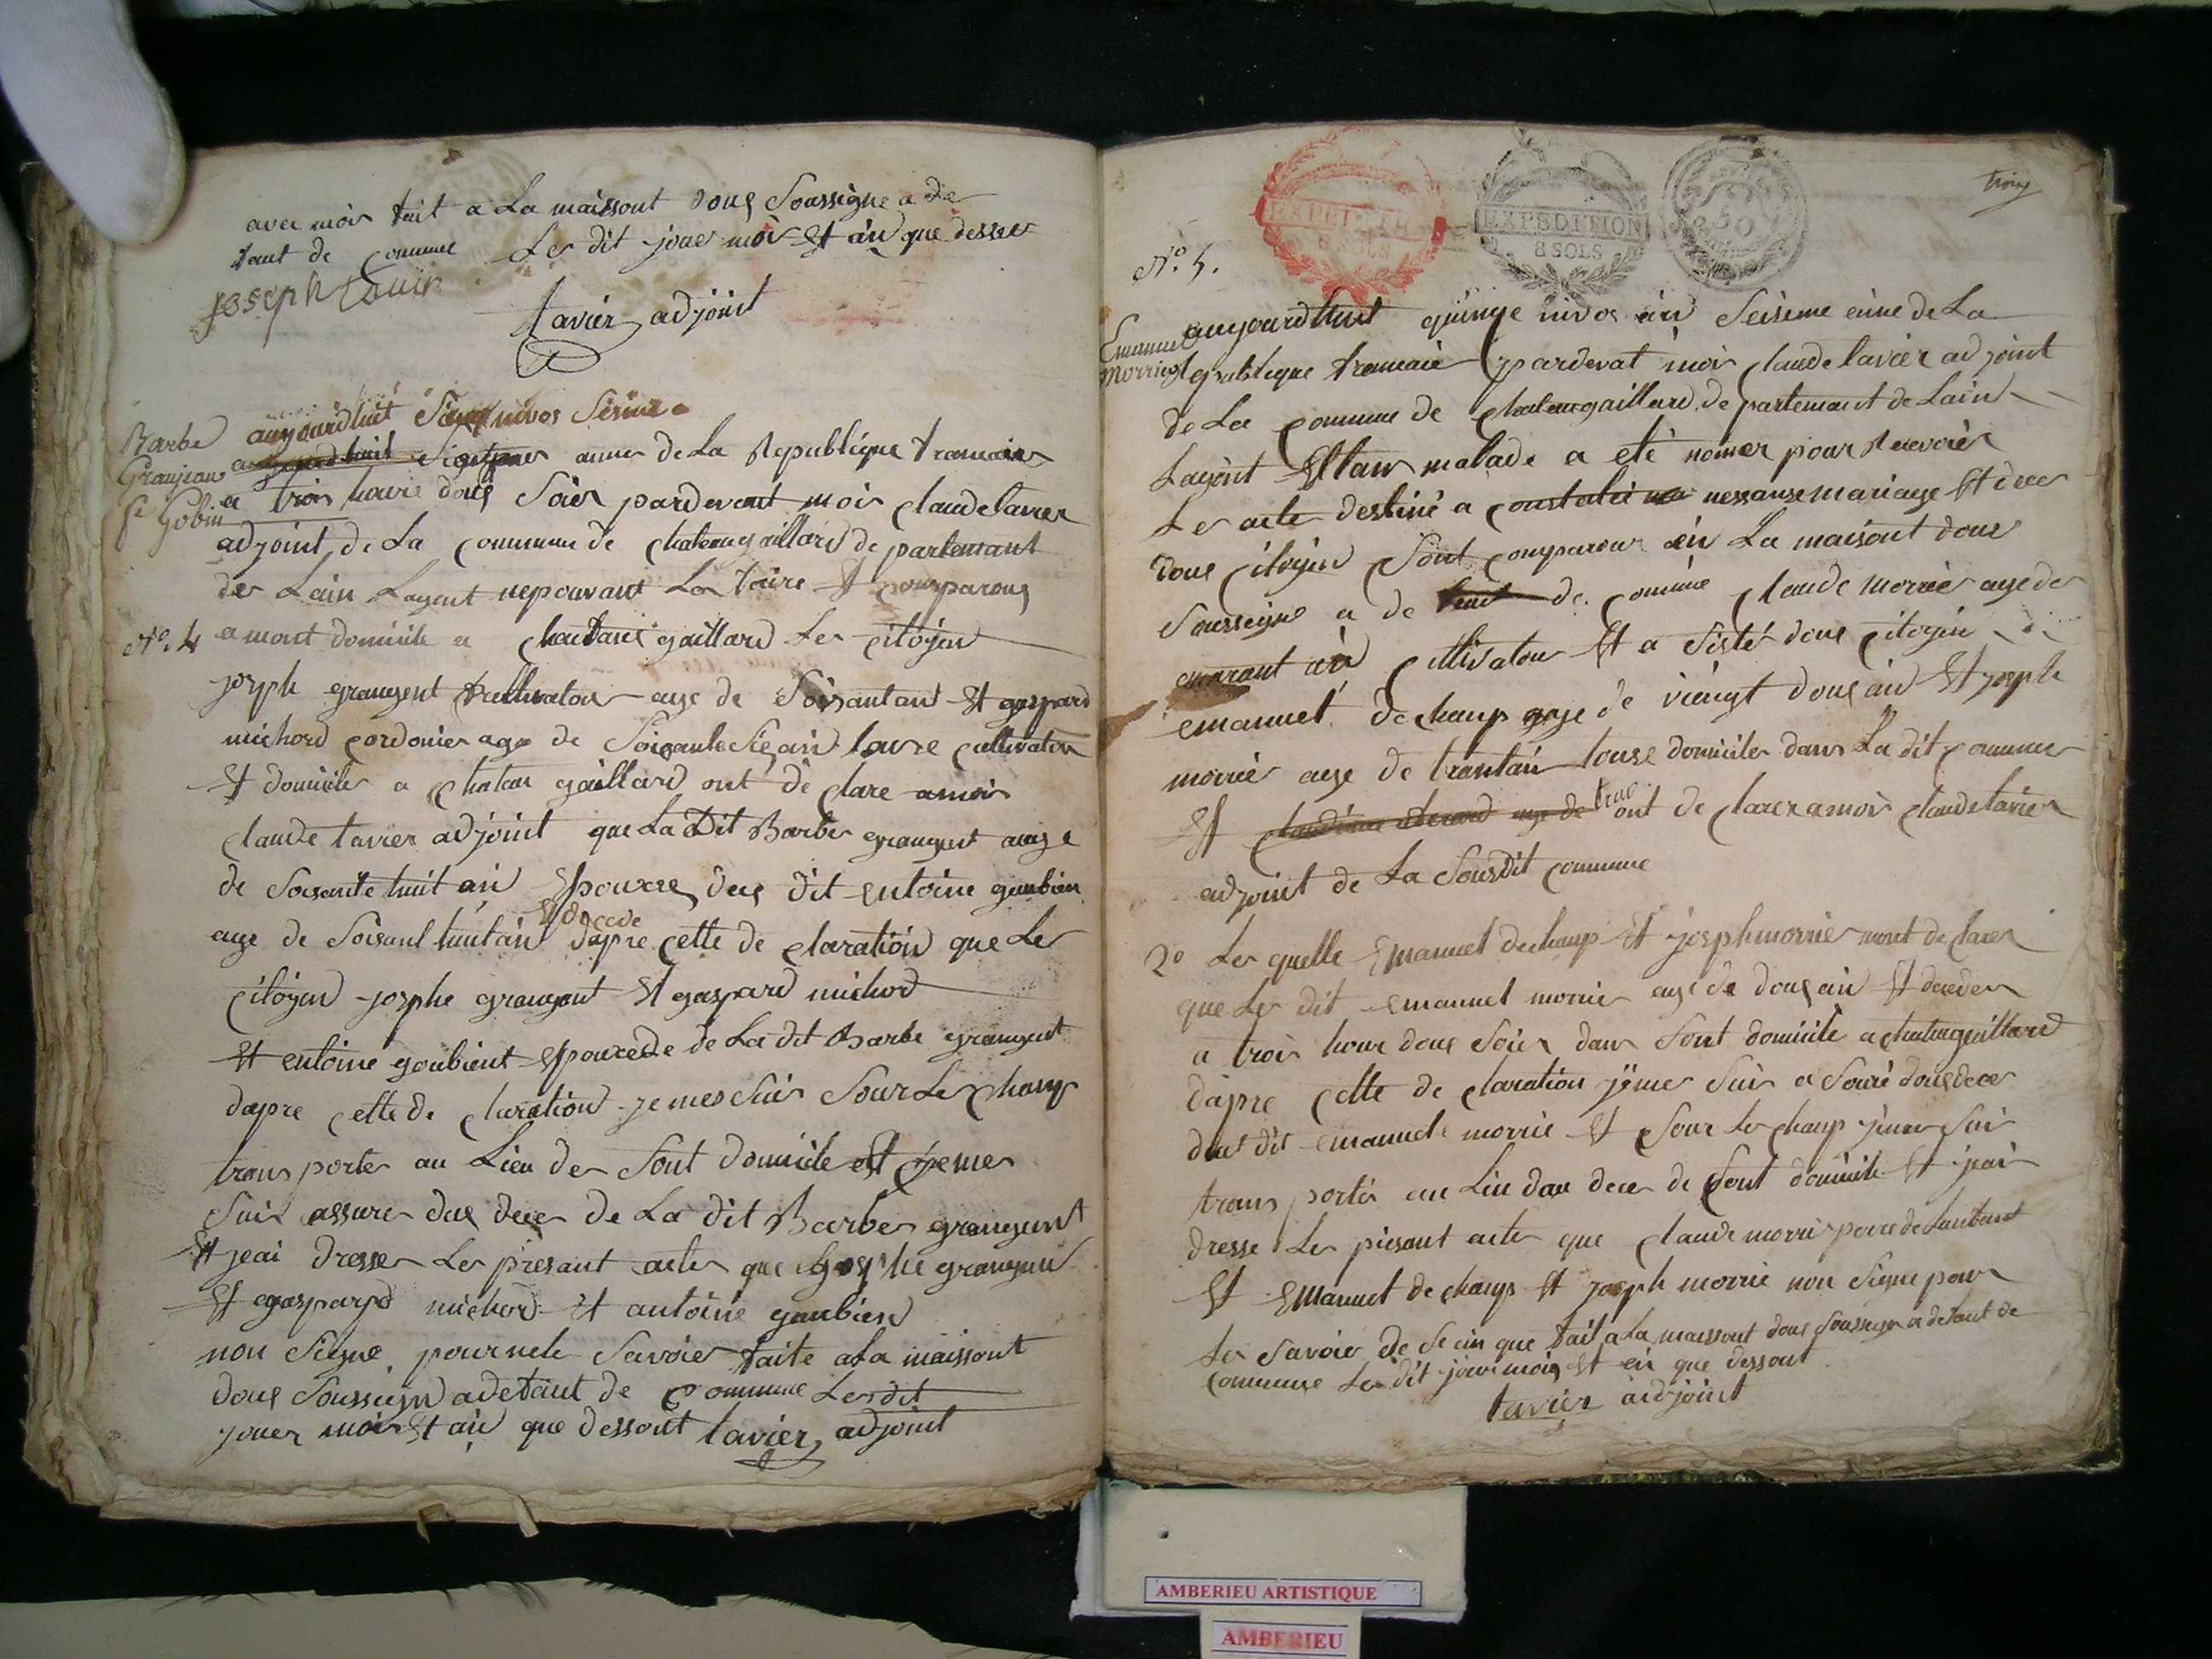 avec moi fait a La maissont doug Soussigne a de
faut de commune Le dit jouer moi Et an que desser
joseph
tavier adjoint
Barbe
Granjean
fe Gobin
aujourdhuit nivos
annee de La Republique francaise
a trois houre doug Soier pardevant moi claude tavier
adjoint de La commune de chateaugaillard de partemant
de Lain Lagent nepouvant La faire Et comparous
N.o 4 a mont domicile a gaillard Le citoyen
joseph grangent cultivatou age de Soisantan Et gaspard
michord cordonier age de an cultivatou
Et domicile a chatau gaillard ont de clare a moi
claude tavier adjoint que La Dit Barbe grangent auge
de Soisante huit an Epouxe deu dit entoine goubien
Et decede
age de Soisant huitan dapre cette de claration que Le
citoyen josphe grangent Et gaspard michord
Et entoine goubient Epouxe De de La dit Barbe grangent
dapre cette de claration je mes Suis Sour Le champ
trans porter au Lieu de Sont domicile et je me
Suis assure deu dece de La dit Barbe grangent
Et jeai dresser Le presant acte que grangent
Et gaspard michord Et antoine goubien
non Signe pour nele Savoier faite a La maissont
doug Soussign adefaut de commune Le dit
jouer moi Et an que dessout tavier adjoint
EXPEDITION
8 SOLS
EXPEDITION
8 SOLS
50
N.o 5.
Emanuel
Morrier
aujourdhuit quinze nivos an Seisieme de La
publique francaise pardevat moi claude tavier adjoint
de La commune de chateaugaillard departemant de Lain
Lagent Etlan malade a eté nomer pour Recevoier
Le acte destiné a constatée nessanse mariage Et dece
doue citoyen Sont comparour ein La maisont doue
Soussigne a de de comune claude morrier age de
carant an cultivatou Et a Sisté doue citoyin
emanuel dechamp age de viengt doug an Et joseph
morrier age de trantan touse domicile dans La dit commune
Et ont de clarer a moi claude tavier
adjoint de La Sousdit commune
2o Le quelle Emanuel dechamp Et joseph morrier mont de clarer
que Le dit emanuel morrier age de doug an Et deceder
a trois hour doue Soier dans Sont domicile a chataugaillard
dapre cette de claration je me Suis a Souré doug dece
deut dit emanuel morrie Et Sour Le champ je me Suis
trans porter au Lieu dau dece de Sont domicile Et jeai
dresse Le presant acte que claude morrie perre de Lanfant
Et Emanuel de champ Et joseph morrie non Signe pour
Le Savoier de Se ein que fait a La maissont doug Soussign a defaut de
commune Le dit jour moi Et ein que dessout
tavier adjoint
AMBERIEU ARTISTIQUE
AMBERIEU